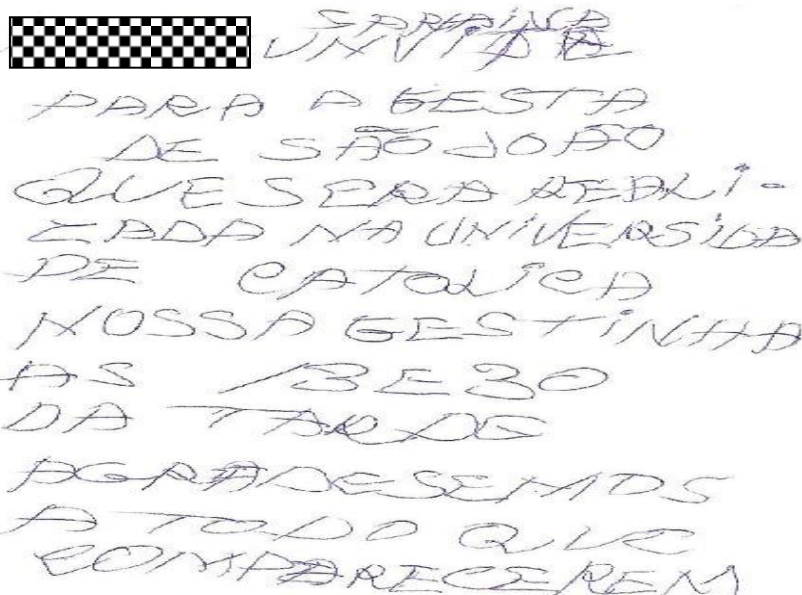 UNVIDA
PARA A FESTA
DE SÃO JOÃO
QUE SERA REALI-
ZADA NA UNIVERSIDA
DE CATOLICA
NOSSA FESTINHA
AS 13E30
DA TARDE
AGRADESEMOS
A TODO QUE
COMPARECEREM